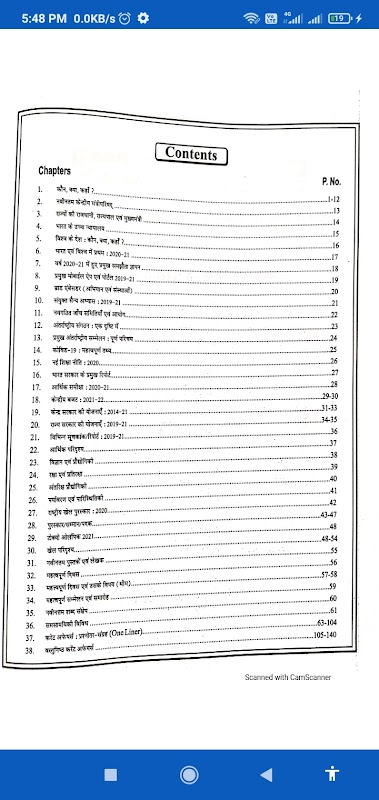 5:48 PM 0.0KB/s 4G 19
Contents
Chapters P. No.
1. कौन, क्या, कहाँ ? 1-12
2. नवीनतम केन्द्रीय मंत्रिपरिषद् 13
3. राज्यों की राजधानी, राज्यपाल एवं मुख्यमंत्री 14
4. भारत के उच्च न्यायालय 15
5. विश्व के देश : कौन, क्या, कहाँ ? 16
6. भारत एवं विश्व में प्रथम : 2020-21 17
7. वर्ष 2020-21 में हुए प्रमुख समझौता ज्ञापन 18
8. प्रमुख मोबाईल ऐप एवं पोर्टल 2019-21 19
9. ब्रांड एंबेसडर (अभियान एवं संस्थाओं) 20
10. संयुक्त सैन्य अभ्यास : 2019-21 21
11. नवगठित जाँच समितियाँ एवं आयोग 22
12. अंतर्राष्ट्रीय संगठन : एक दृष्टि में 23
13. प्रमुख अंतर्राष्ट्रीय सम्मेलन : पूर्ण परिचय 24
14. कोविड-19 : महत्वपूर्ण तथ्य 25
15. नई शिक्षा नीति : 2020 26
16. भारत सरकार के प्रमुख रिपोर्ट 27
17. आर्थिक समीक्षा : 2020-21 28
18. केन्द्रीय बजट : 2021-22 29-30
19. केन्द्र सरकार की योजनाएँ : 2014-21 31-33
20. राज्य सरकार की योजनाएँ : 2019-21 34-35
21. विभिन्न सूचकांक/रिपोर्ट : 2019-21 36
22. आर्थिक परिदृश्य 37
23. विज्ञान एवं प्रौद्योगिकी 38
24. रक्षा एवं प्रतिरक्षा 39
25. अंतरिक्ष प्रौद्योगिकी 40
26. पर्यावरण एवं पारिस्थितिकी 41
27. राष्ट्रीय खेल पुरस्कार : 2020 42
28. पुरस्कार/सम्मान/पदक 43-47
29. टोक्यो ओलंपिक 2021 48
30. खेल परिदृश्य 48-54
31. नवीनतम पुस्तकें एवं लेखक 55
32. महत्वपूर्ण दिवस 56
33. महत्वपूर्ण दिवस एवं उसके विषय (थीम) 57-58
34. महत्वपूर्ण सम्मेलन एवं समारोह 59
35. नवीनतम शब्द संक्षेप 60
36. समसामयिकी विविध 61
37. करेंट अफेयर्स : प्रश्नोत्तर-संग्रह (One Liner) 63-104
38. वस्तुनिष्ठ करेंट अफेयर्स 105-140
Scanned with CamScanner